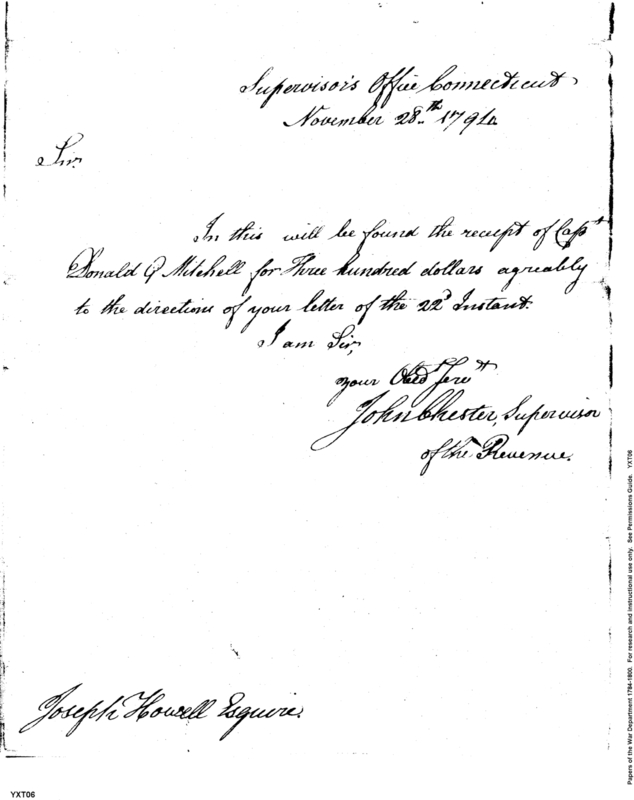 Supervisor's Office Connecticut
November 28th 1794
Sir,
In this will be found the receipt of Capt
Donald G Mitchell for Three hundred dollars agreably
to the directions of your letter of the 22d Instant.
I am Sir,
your Obedt Servt
John Chester, Supervisor
of the Revenue.
Joseph Howell Esquire.
Papers of the War Department 1784-1800. For research and instructional use only. See Permissions Guide. YXT06
YXT06